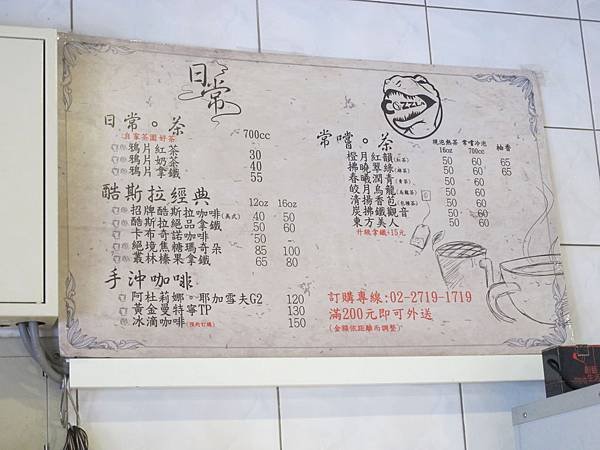 日常
COZZI
日常。茶
自家茶園好茶
700cc
鴉片紅茶 30
鴉片奶茶 40
鴉片拿鐵 55
酷斯拉經典 12oz 16oz
招牌酷斯拉咖啡(美式) 40 50
酷斯拉絕品拿鐵 50 60
卡布奇諾咖啡 50 -
絕境焦糖瑪奇朵 85 100
叢林榛果拿鐵 65 80
手沖咖啡
阿杜莉娜。耶加雪夫G2 120
黃金曼特寧TP 130
冰滴咖啡(預約訂購) 150
常嚐。茶
現泡熱茶 常嚐冷泡 柚香
16oz 700cc
橙月紅韻(紅茶) 50 60 65
拂曉翠綠(綠茶) 50 60 65
春曦潤青(青茶) 50 60
皎月烏龍(烏龍茶) 50 60
清揚香苞(包種茶) 50 60
炭拂鐵觀音 50 60
東方美人 50 60
升級拿鐵+15元
訂購專線:02-2719-1719
滿200元即可外送
(金額依距離而調整)